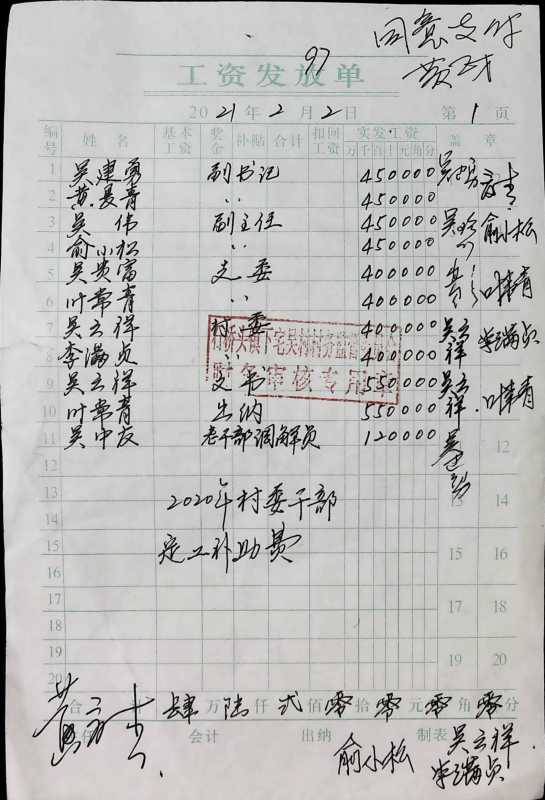 同意支付
97
工资发放单
2021年2月2日 第1页
编号 姓名 基本工资 奖金 补贴 合计 扣回工资 实发工资 盖章
万千百十元角分
1 吴建勇 副书记 450000
2 黄夏青 〃 450000
3 吴伟 副主任 450000 俞小松
4 俞小松 〃 450000
5 吴贵富 支委 400000
6 叶常青 〃 400000 叶常青
7 吴立祥 村委 400000 吴立祥
8 李满贞 〃 400000 李满贞
9 吴立祥 文书 550000 吴立祥
10 叶常青 出纳 550000 叶常青
11 吴中友 老干部调解员 120000 12
石桥头镇下宅吴村村务监督委员会
财务审核专用章
12
13 2020年村委干部 13 14
14
15 定工补助费 15 16
16
17 17 18
18
19 19 20
20
合 肆万陆仟弍佰零拾零元零角零分
主任 会计 出纳 制表
俞小松 吴立祥
李满贞